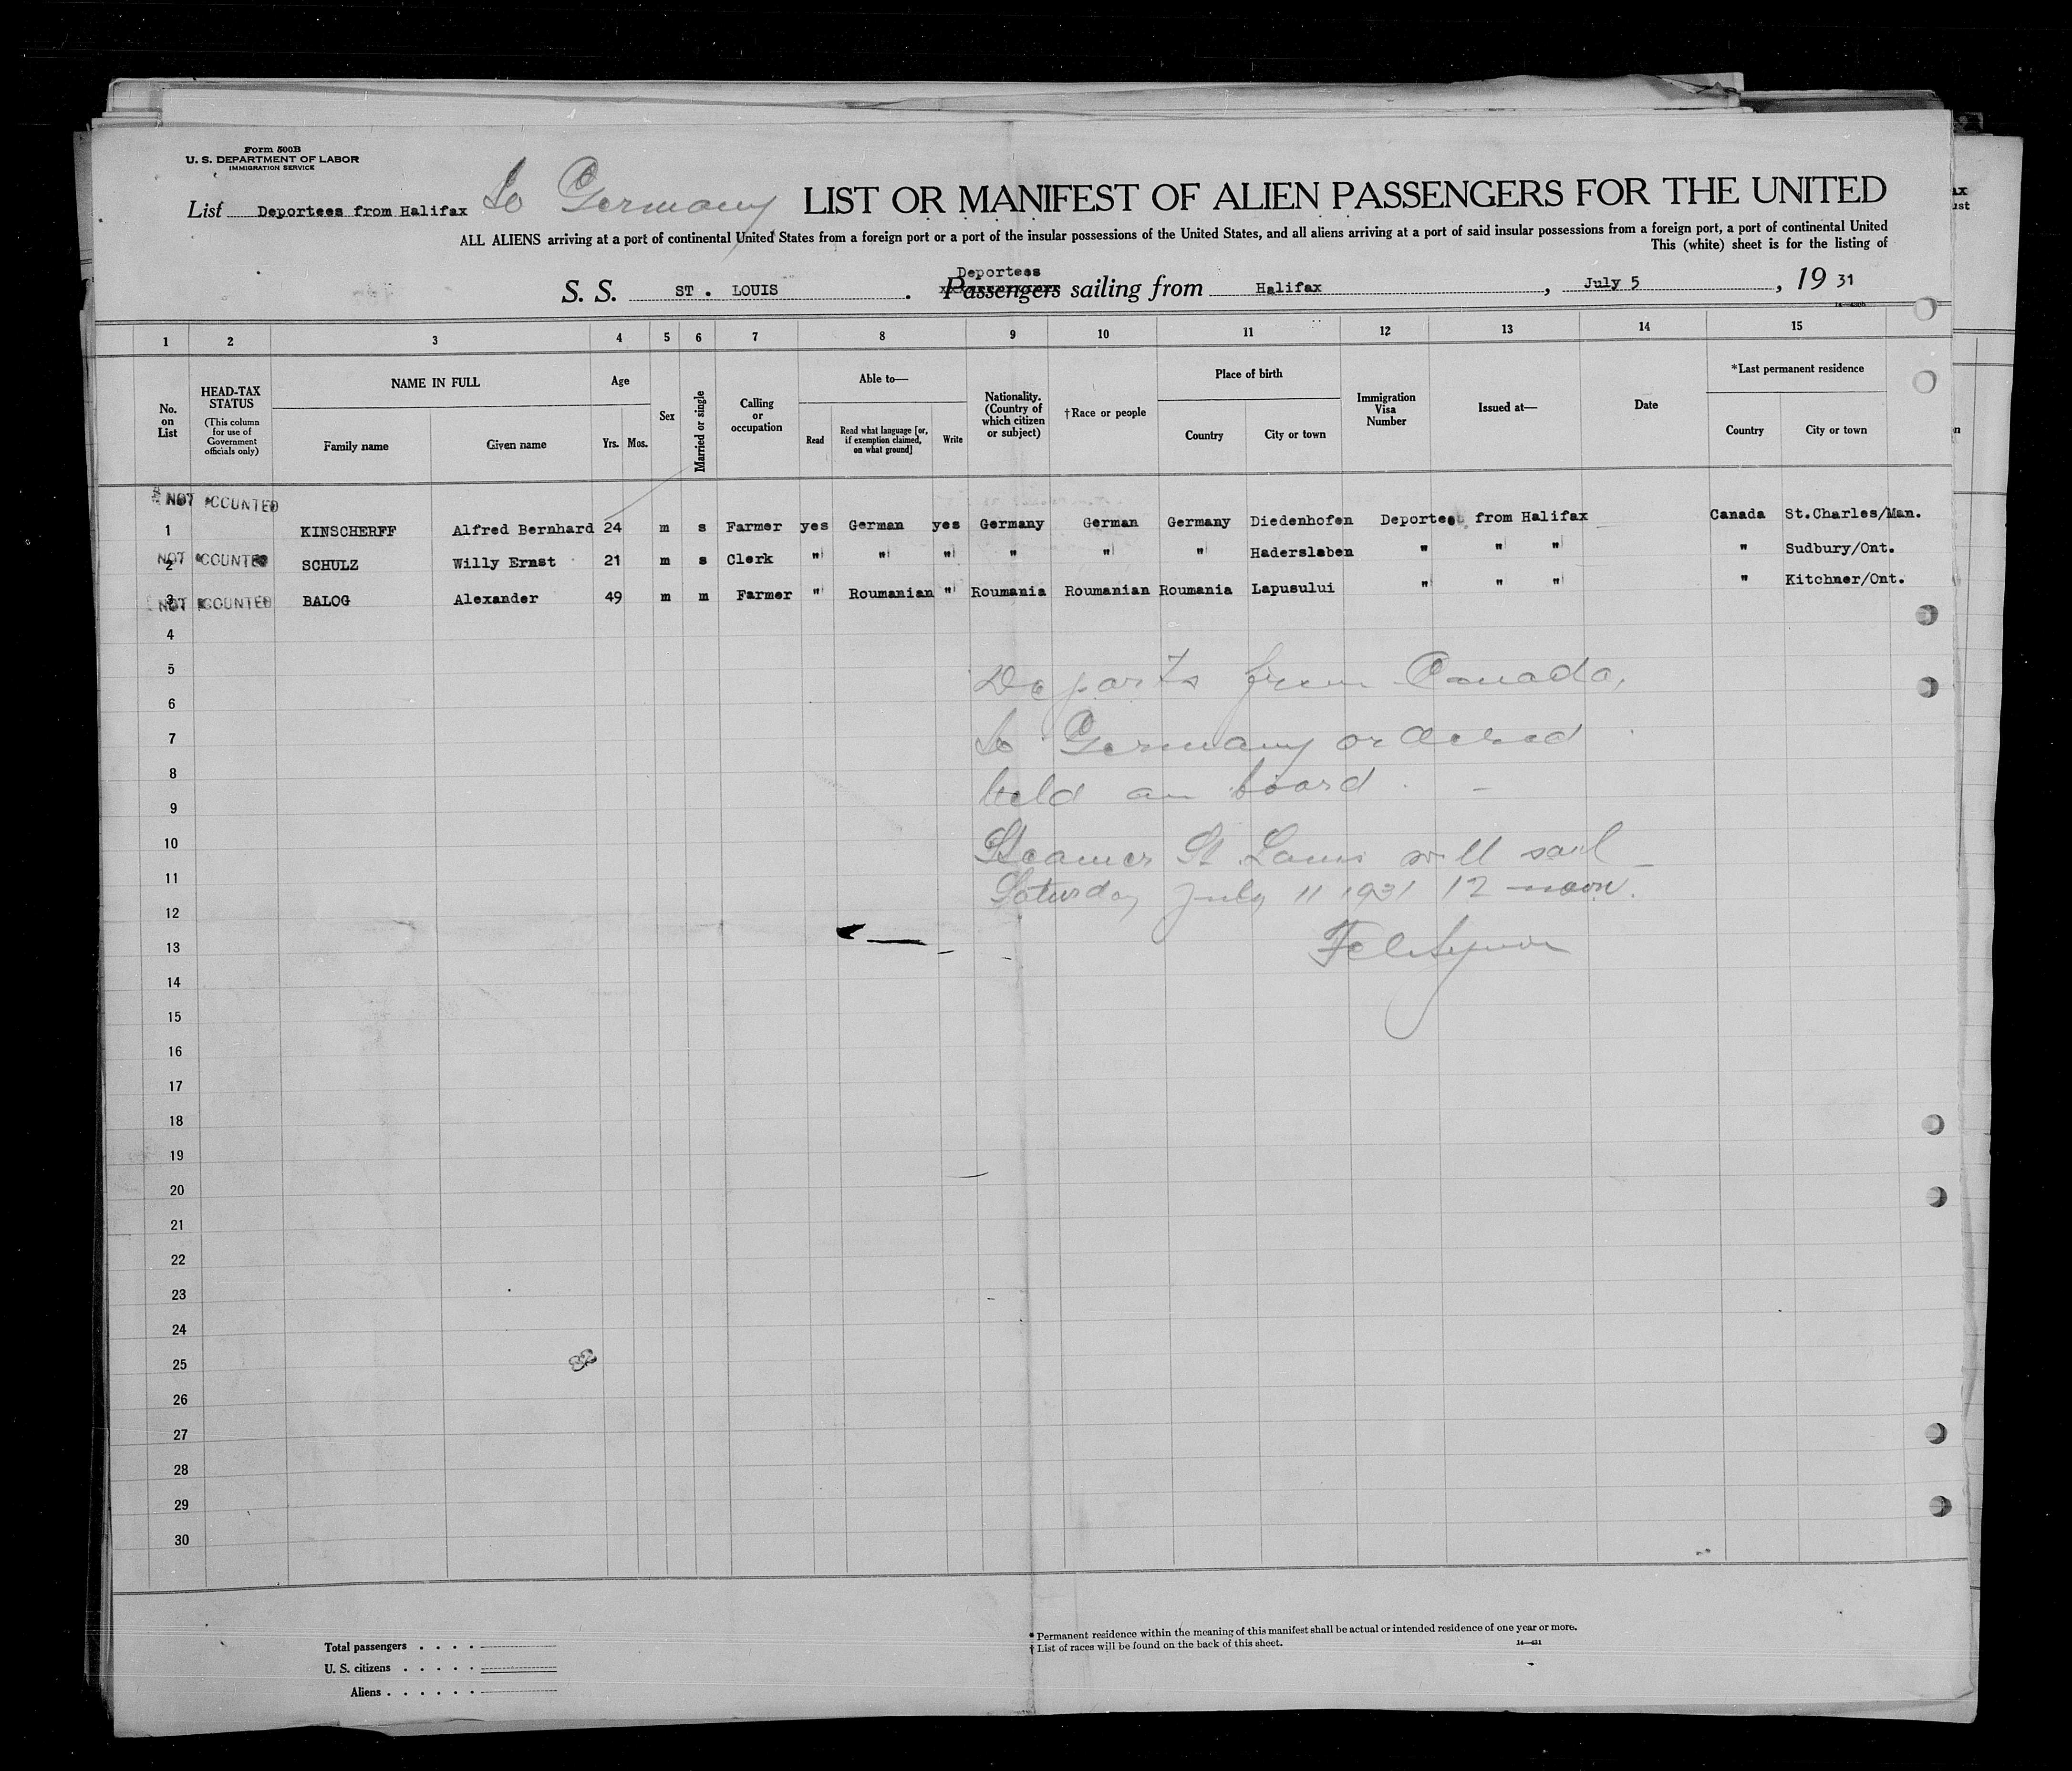 Form 500B
U. S. DEPARTMENT OF LABOR
IMMIGRATION SERVICE
List Deportees from Halifax to Germany LIST OR MANIFEST OF ALIEN PASSENGERS FOR THE UNITED
ALL ALIENS arriving at a port of continental United States from a foreign port or a port of the insular possessions of the United States, and all aliens arriving at a port of said insular possessions from a foreign port, a port of continental United
This (white) sheet is for the listing of
Deportees
S. S. ST. LOUIS . Passengers sailing from Halifax , July 5 , 19 31
1 2 3 4 5 6 7 8 9 10 11 12 13 14 15
No. on List
HEAD-TAX STATUS
(This column for use of Government officials only)
NAME IN FULL
Family name Given name
Age
Yrs. Mos.
Sex
Married or single
Calling or occupation
Able to—
Read
Read what language [or, if exemption claimed, on what ground]
Write
Nationality. (Country of which citizen or subject)
†Race or people
Place of birth
Country City or town
Immigration Visa Number
Issued at—
Date
*Last permanent residence
Country City or town
NOT COUNTED
1 KINSCHERFF Alfred Bernhard 24 m s Farmer yes German yes Germany German Germany Diedenhofen Deportee from Halifax Canada St.Charles/Man.
NOT COUNTED
2 SCHULZ Willy Ernst 21 m s Clerk " " " " " " Haderslaben " " " " Sudbury/Ont.
NOT COUNTED
3 BALOG Alexander 49 m m Farmer " Roumanian " Roumania Roumanian Roumania Lapusului " " " " Kitchner/Ont.
4
5
6
7
8
9
10
11
12
13
14
15
16
17
18
19
20
21
22
23
24
25
26
27
28
29
30
Deports from Canada,
to Germany ordered
held on board.
Steamer St Louis will sail
Saturday July 11 1931 12 noon.
Total passengers . . . .
U. S. citizens . . . . .
Aliens . . . . . .
* Permanent residence within the meaning of this manifest shall be actual or intended residence of one year or more.
† List of races will be found on the back of this sheet.
14—431